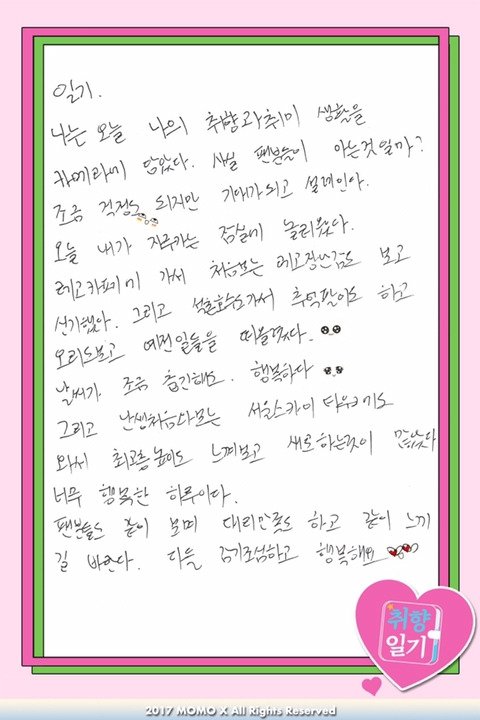 일기.
나는 오늘 나의 취향과 취미 생활을
카메라에 담았다. 사실 팬분들이 아는것일까?
조금 걱정도 되지만 기대가 되고 설레인다.
오늘 내가 자주가는 잠실에 놀러왔다.
레고카페에 가서 처음보는 레고장난감도 보고
신기했다. 그리고 석촌호수도가서 추억팔이도 하고
오리도보고 예전일들을 떠올렸다.
날씨가 조금 춥긴해도. 행복하다
그리고 난생처음와보는 서울스카이 타워까지도
와서 최고층높이도 느껴보고 새로하는것이 많았다
너무 행복한 하루이다.
팬분들도 같이 보며 대리만족도 하고 같이 느끼
길 바란다. 다들 감기조심하고 행복해요
취향
일기
2017 MOMO X All Rights Reserved